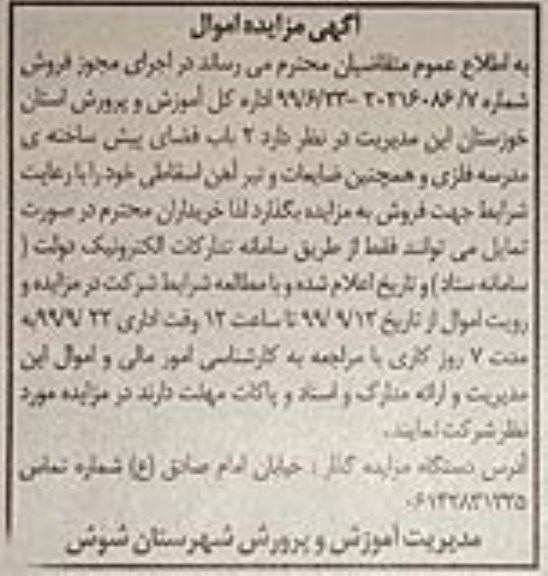 آگهی مزایده اموال
به اطلاع عموم متقاضیان محترم می رساند در اجرای مجوز فروش
شماره ۷/ اداره کل آموزش و پرورش استان
خوزستان این مدیریت در نظر دارد ۲ باب فضای پیش ساخته ی
مدرسه فلزی و همچنین ضایعات و تیر آهن اسقاطی خود را با رعایت
شرایط جهت فروش به مزایده بگذارد لذا خریداران محترم در صورت
تمایل می توانند فقط از طریق سامانه تدارکات الکترونیک دولت (
سامانه ستاد) و تاریخ اعلام شده و با مطالعه شرایط شرکت در مزایده و
رویت اموال از تاریخ ۹۹/ ۹/۱۳ تا ساعت ۱۲ وقت اداری ۹۹/۹/ ۲۲ به
مدت ۷ روز کاری با مراجعه به کارشناسی امور مالی و اموال این
مدیریت و ارائه مدارک و اسناد و پاکات مهلت دارند در مزایده مورد
نظر شرکت نمایند.
آدرس دستگاه مزایده گذار : خیابان امام صادق (ع) شماره تماس
مدیریت آموزش و پرورش شهرستان شوش